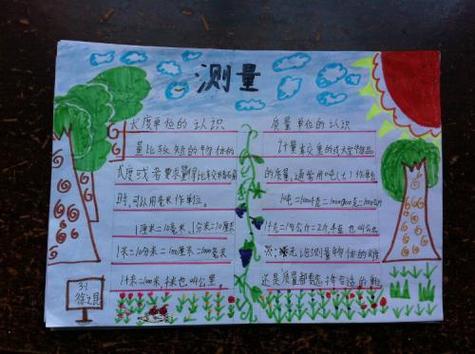 测量
长度单位的认识
量比较短的物体的
长度或者要求量得比较精确
时,可以用毫米作单位。
1厘米=10毫米,1分米=10厘米
1米=10分米=100厘米=1000毫米
1千米=1000米,千米也叫公里。
质量单位的认识
计量较重的或大宗物品
的质量,通常用吨(t)作单位
1吨=1000千克
1千克=1公斤=2斤,千克也叫公斤
无论测量物体的
还是质量都要选择合适的单位
3.1
徐